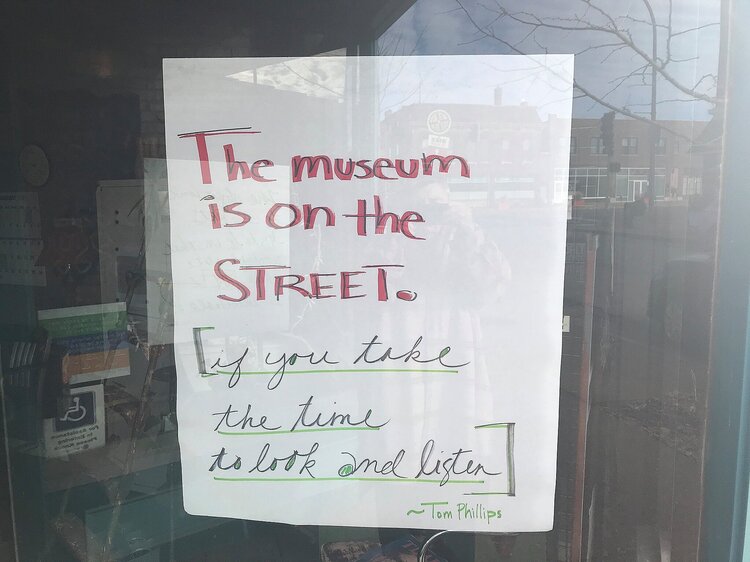 The museum
is on the
STREET.
[if you take
the time
to look and listen]
~Tom Phillips